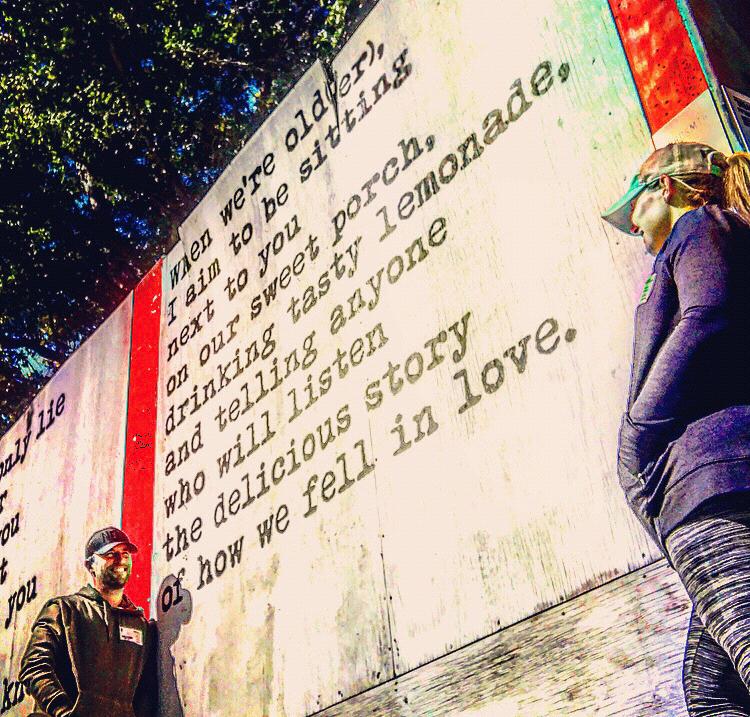 only lie
you
t
you
When we're old(er),
I aim to be sitting
next to you
on our sweet porch,
drinking tasty lemonade,
and telling anyone
who will listen
the delicious story
of how we fell in love.